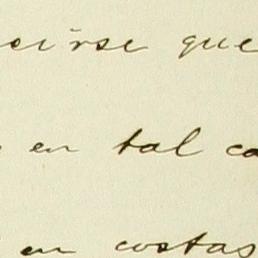 cirse que
en tal ca
en costas